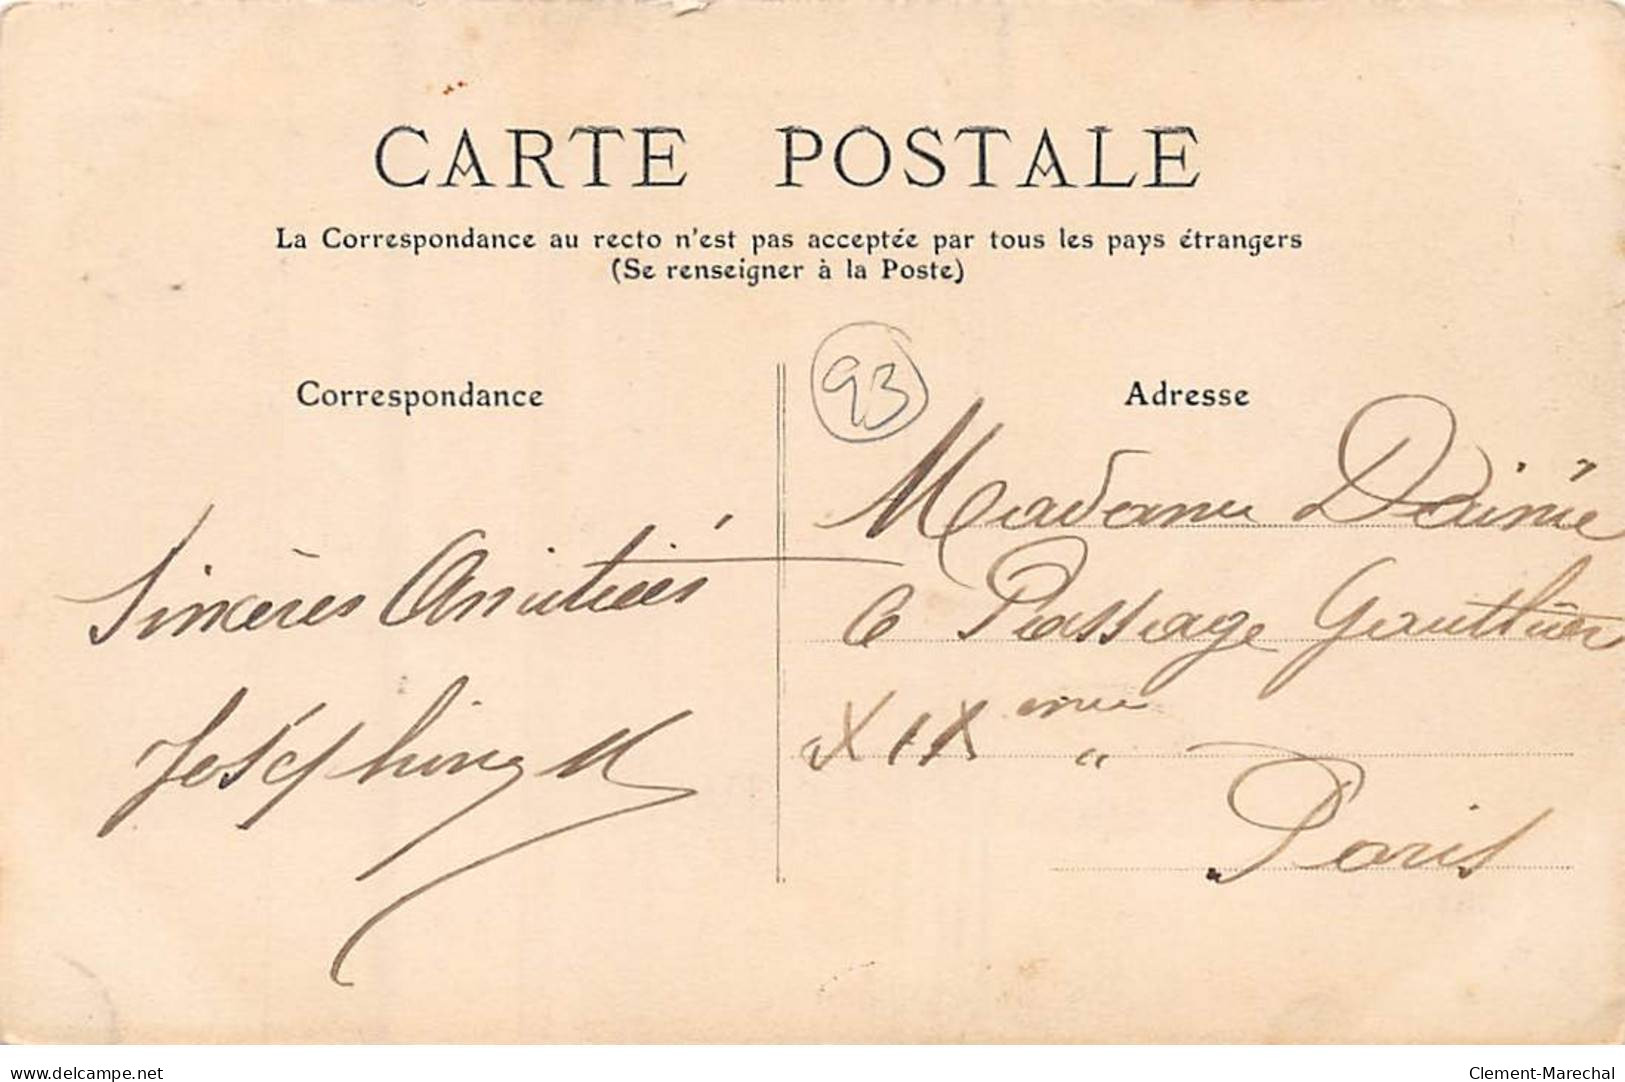 CARTE POSTALE
La Correspondance au recto n'est pas acceptée par tous les pays étrangers
(Se renseigner à la Poste)
Correspondance
93
Adresse
Sincères Amitiés
Joséphine M
Madame
6 Passage Gauthier
XIXème
Paris
www.delcampe.net
Clement-Marechal